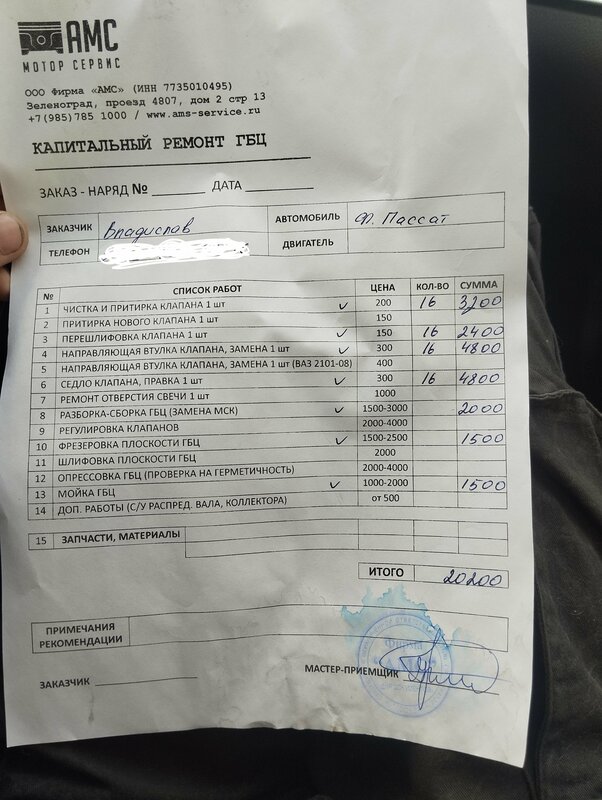 АМС
МОТОР СЕРВИС
ООО Фирма «АМС» (ИНН 7735010495)
Зеленоград, проезд 4807, дом 2 стр 13
+7(985)785 1000 / www.ams-service.ru
КАПИТАЛЬНЫЙ РЕМОНТ ГБЦ
ЗАКАЗ - НАРЯД № ДАТА
ЗАКАЗЧИК Владислав АВТОМОБИЛЬ Ф. Пассат
ТЕЛЕФОН ДВИГАТЕЛЬ
№ СПИСОК РАБОТ ЦЕНА КОЛ-ВО СУММА
1 ЧИСТКА И ПРИТИРКА КЛАПАНА 1 шт ✓ 200 16 3200
2 ПРИТИРКА НОВОГО КЛАПАНА 1 шт 150
3 ПЕРЕШЛИФОВКА КЛАПАНА 1 шт ✓ 150 16 2400
4 НАПРАВЛЯЮЩАЯ ВТУЛКА КЛАПАНА, ЗАМЕНА 1 шт ✓ 300 16 4800
5 НАПРАВЛЯЮЩАЯ ВТУЛКА КЛАПАНА, ЗАМЕНА 1 шт (ВАЗ 2101-08) 400
6 СЕДЛО КЛАПАНА, ПРАВКА 1 шт ✓ 300 16 4800
7 РЕМОНТ ОТВЕРСТИЯ СВЕЧИ 1 шт 1000
8 РАЗБОРКА-СБОРКА ГБЦ (ЗАМЕНА МСК) ✓ 1500-3000 2000
9 РЕГУЛИРОВКА КЛАПАНОВ 2000-4000
10 ФРЕЗЕРОВКА ПЛОСКОСТИ ГБЦ ✓ 1500-2500 1500
11 ШЛИФОВКА ПЛОСКОСТИ ГБЦ 2000
12 ОПРЕССОВКА ГБЦ (ПРОВЕРКА НА ГЕРМЕТИЧНОСТЬ) 2000-4000
13 МОЙКА ГБЦ ✓ 1000-2000 1500
14 ДОП. РАБОТЫ (С/У РАСПРЕД. ВАЛА, КОЛЛЕКТОРА) от 500
15 ЗАПЧАСТИ, МАТЕРИАЛЫ
ИТОГО 20200
ПРИМЕЧАНИЯ
РЕКОМЕНДАЦИИ
ЗАКАЗЧИК МАСТЕР-ПРИЕМЩИК
Фирма
"АМС"